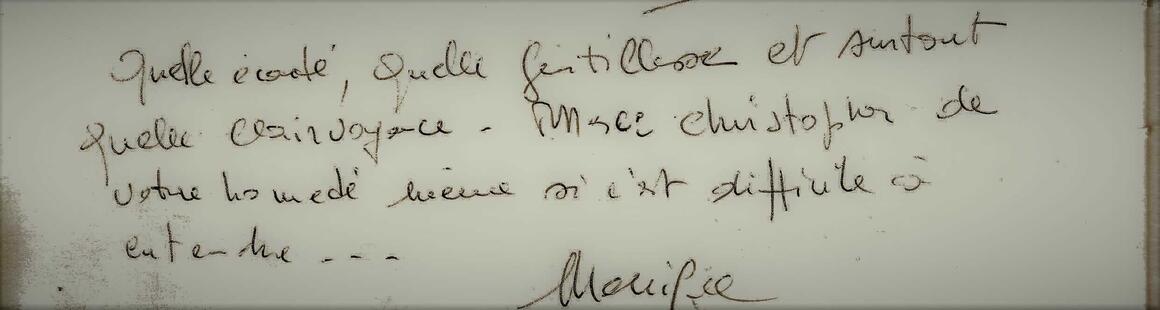 Quelle écouté, Quelle gentillesse et surtout
quelle clairvoyance. Merci christophe de
votre homedé même si c'est difficile à
entendre ---